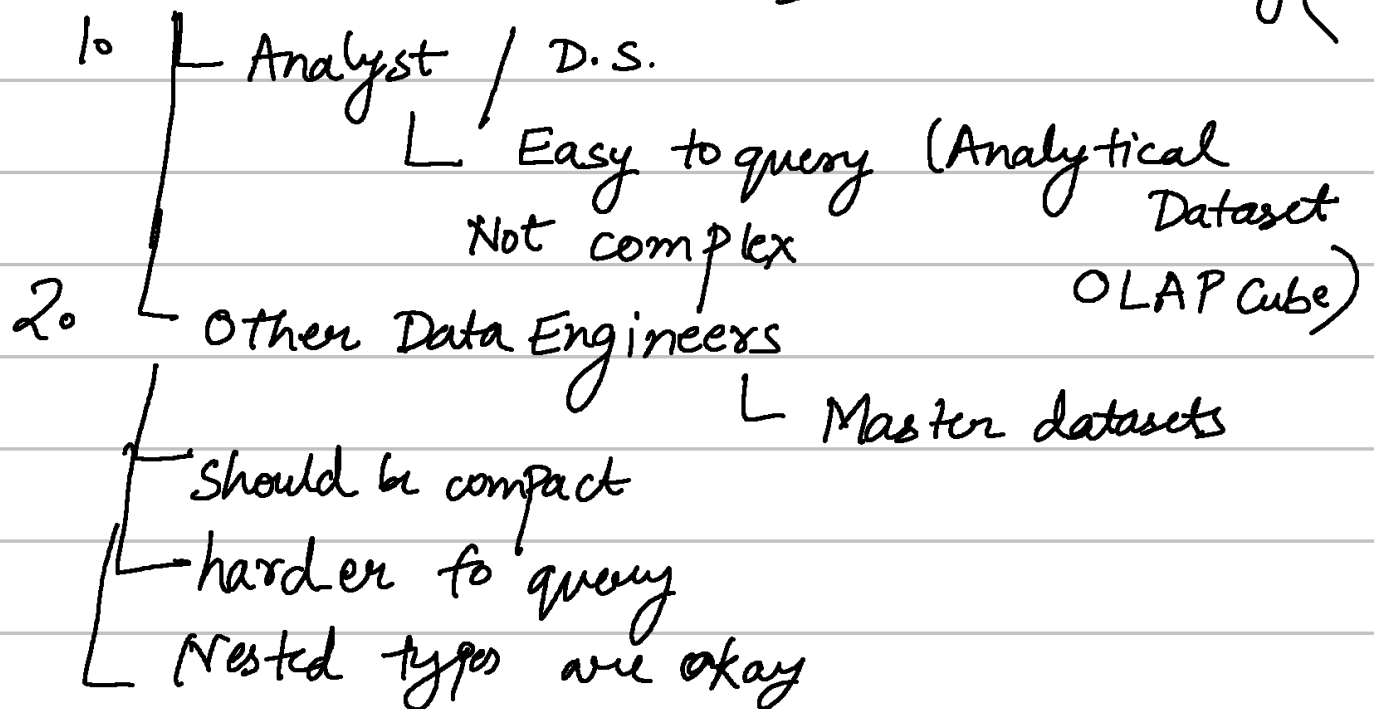 1. Analyst / D.S.
Easy to query (Analytical
Dataset
Not complex
OLAP Cube)
2. Other Data Engineers
Master datasets
Should be compact
harder to query
Nested types are okay